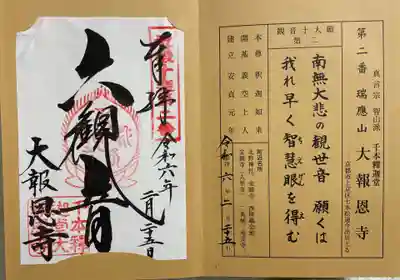 真言宗 智山派 千本釈迦堂
第二番 瑞應山 大報恩寺
京都市上京区七本松通今出川上る
南無大悲の観世音 願くは
我れ早く智慧眼を得む
ちえげん
願大十
第二
音観
本尊 釈迦如来
開基 義空上人
建立 安貞元年
附近名所
北野神社
令和 六年 二月二十五日
奉拝
令和六年
二月二十五日
六観音
大報恩寺
千本釋
迦堂大